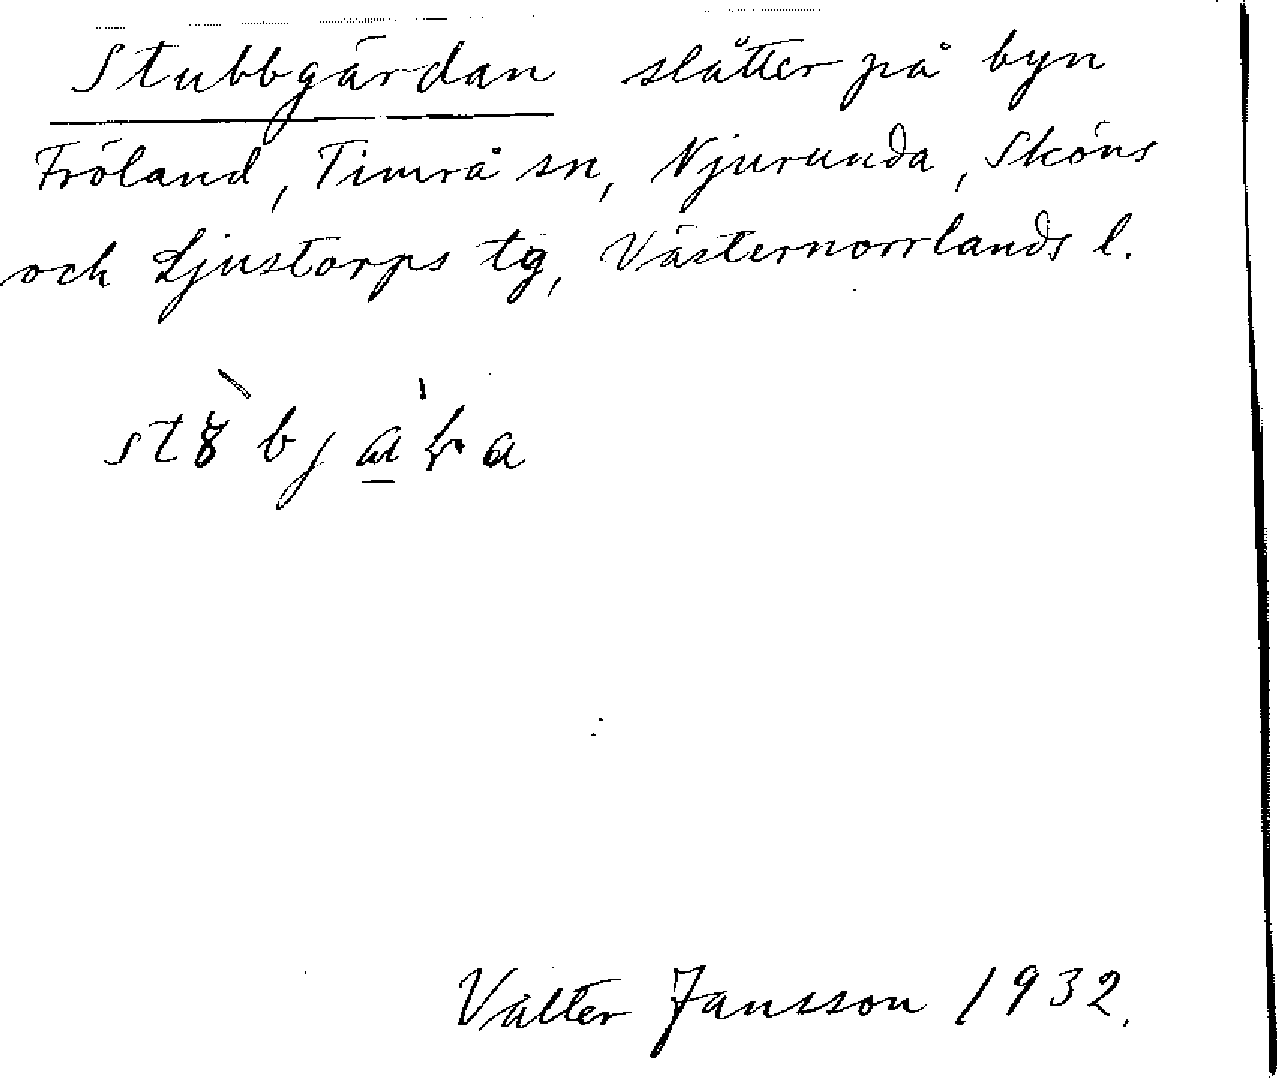 Stubbgärdan slåtter på byn
Fröland, Timrå sn, Njurunda, Sköns
och Ljustorps tg, Västernorrlands l.
Valter Jansson 1932.